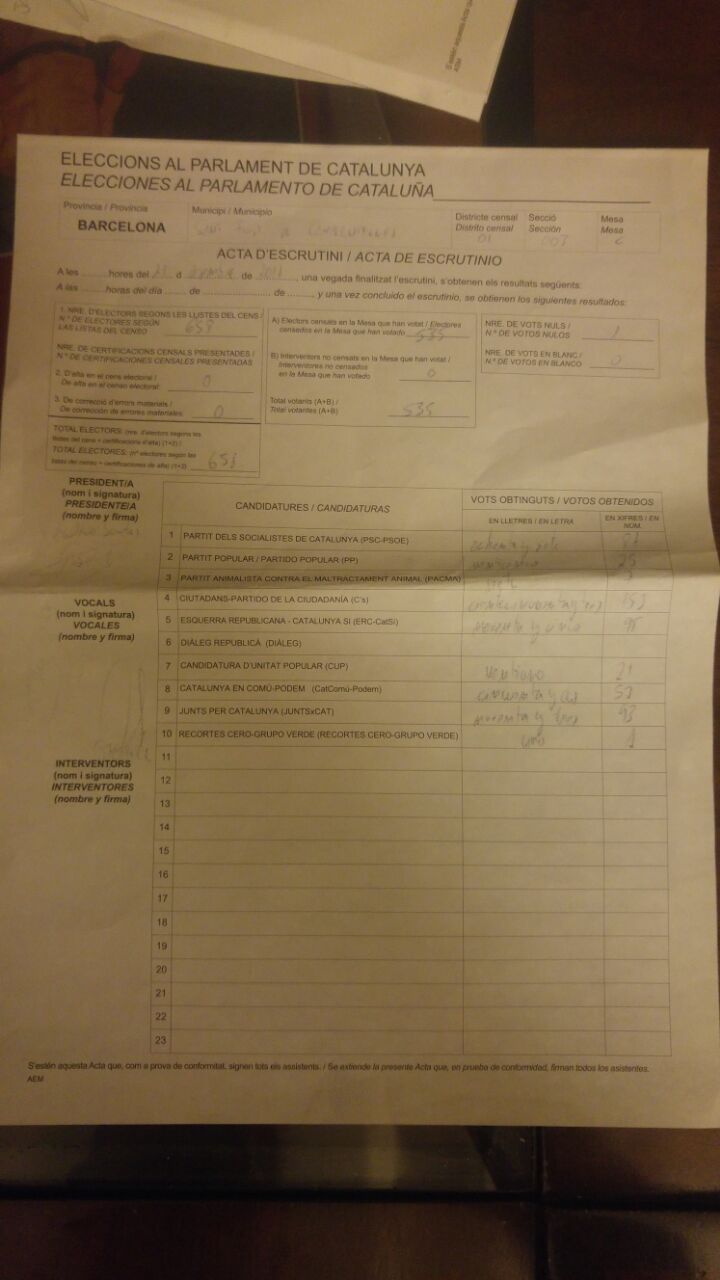 S'estén aquesta Acta que
AEM
ELECCIONS AL PARLAMENT DE CATALUNYA
ELECCIONES AL PARLAMENTO DE CATALUÑA
Província / Provincia
BARCELONA
Municipi / Municipio
Districte censal
Distrito censal
01
Secció
Sección
003
Mesa
Mesa
ACTA D'ESCRUTINI / ACTA DE ESCRUTINIO
A les ......... hores del ...... d ............ de ......., una vegada finalitzat l'escrutini, s'obtenen els resultats següents:
A las ......... horas del día ....... de ........................ de ........, y una vez concluido el escrutinio, se obtienen los siguientes resultados:
1. NRE. D'ELECTORS SEGONS LES LLISTES DEL CENS /
N.º DE ELECTORES SEGÚN
LAS LISTAS DEL CENSO 653
NRE. DE CERTIFICACIONS CENSALS PRESENTADES /
N.º DE CERTIFICACIONES CENSALES PRESENTADAS
2. D'alta en el cens electoral /
De alta en el censo electoral: 0
3. De correcció d'errors materials /
De corrección de errores materiales: 0
TOTAL ELECTORS: (nre. d'electors segons les
llistes del cens + certificacions d'alta) (1+2) /
TOTAL ELECTORES: (nº electores según las
listas del censo + certificaciones de alta) (1+2) 653
A) Electors censats en la Mesa que han votat / Electores
censados en la Mesa que han votado 535
B) Interventors no censats en la Mesa que han votat /
Interventores no censados
en la Mesa que han votado 0
Total votants (A+B) /
Total votantes (A+B) 535
NRE. DE VOTS NULS /
N.º DE VOTOS NULOS 1
NRE. DE VOTS EN BLANC /
N.º DE VOTOS EN BLANCO
PRESIDENT/A
(nom i signatura)
PRESIDENTE/A
(nombre y firma)
VOCALS
(nom i signatura)
VOCALES
(nombre y firma)
INTERVENTORS
(nom i signatura)
INTERVENTORES
(nombre y firma)
CANDIDATURES / CANDIDATURAS
VOTS OBTINGUTS / VOTOS OBTENIDOS
EN LLETRES / EN LETRA
EN XIFRES / EN NÚM.
1 PARTIT DELS SOCIALISTES DE CATALUNYA (PSC-PSOE)
2 PARTIT POPULAR / PARTIDO POPULAR (PP) 25
3 PARTIT ANIMALISTA CONTRA EL MALTRACTAMENT ANIMAL (PACMA)
4 CIUTADANS-PARTIDO DE LA CIUDADANÍA (C's)
5 ESQUERRA REPUBLICANA - CATALUNYA SÍ (ERC-CatSí)
6 DIÀLEG REPUBLICÀ (DIÀLEG)
7 CANDIDATURA D'UNITAT POPULAR (CUP) 21
8 CATALUNYA EN COMÚ-PODEM (CatComú-Podem) 53
9 JUNTS PER CATALUNYA (JUNTSxCAT) noventa y tres 93
10 RECORTES CERO-GRUPO VERDE (RECORTES CERO-GRUPO VERDE) uno 1
11
12
13
14
15
16
17
18
19
20
21
22
23
S'estén aquesta Acta que, com a prova de conformitat, signen tots els assistents. / Se extiende la presente Acta que, en prueba de conformidad, firman todos los asistentes.
AEM